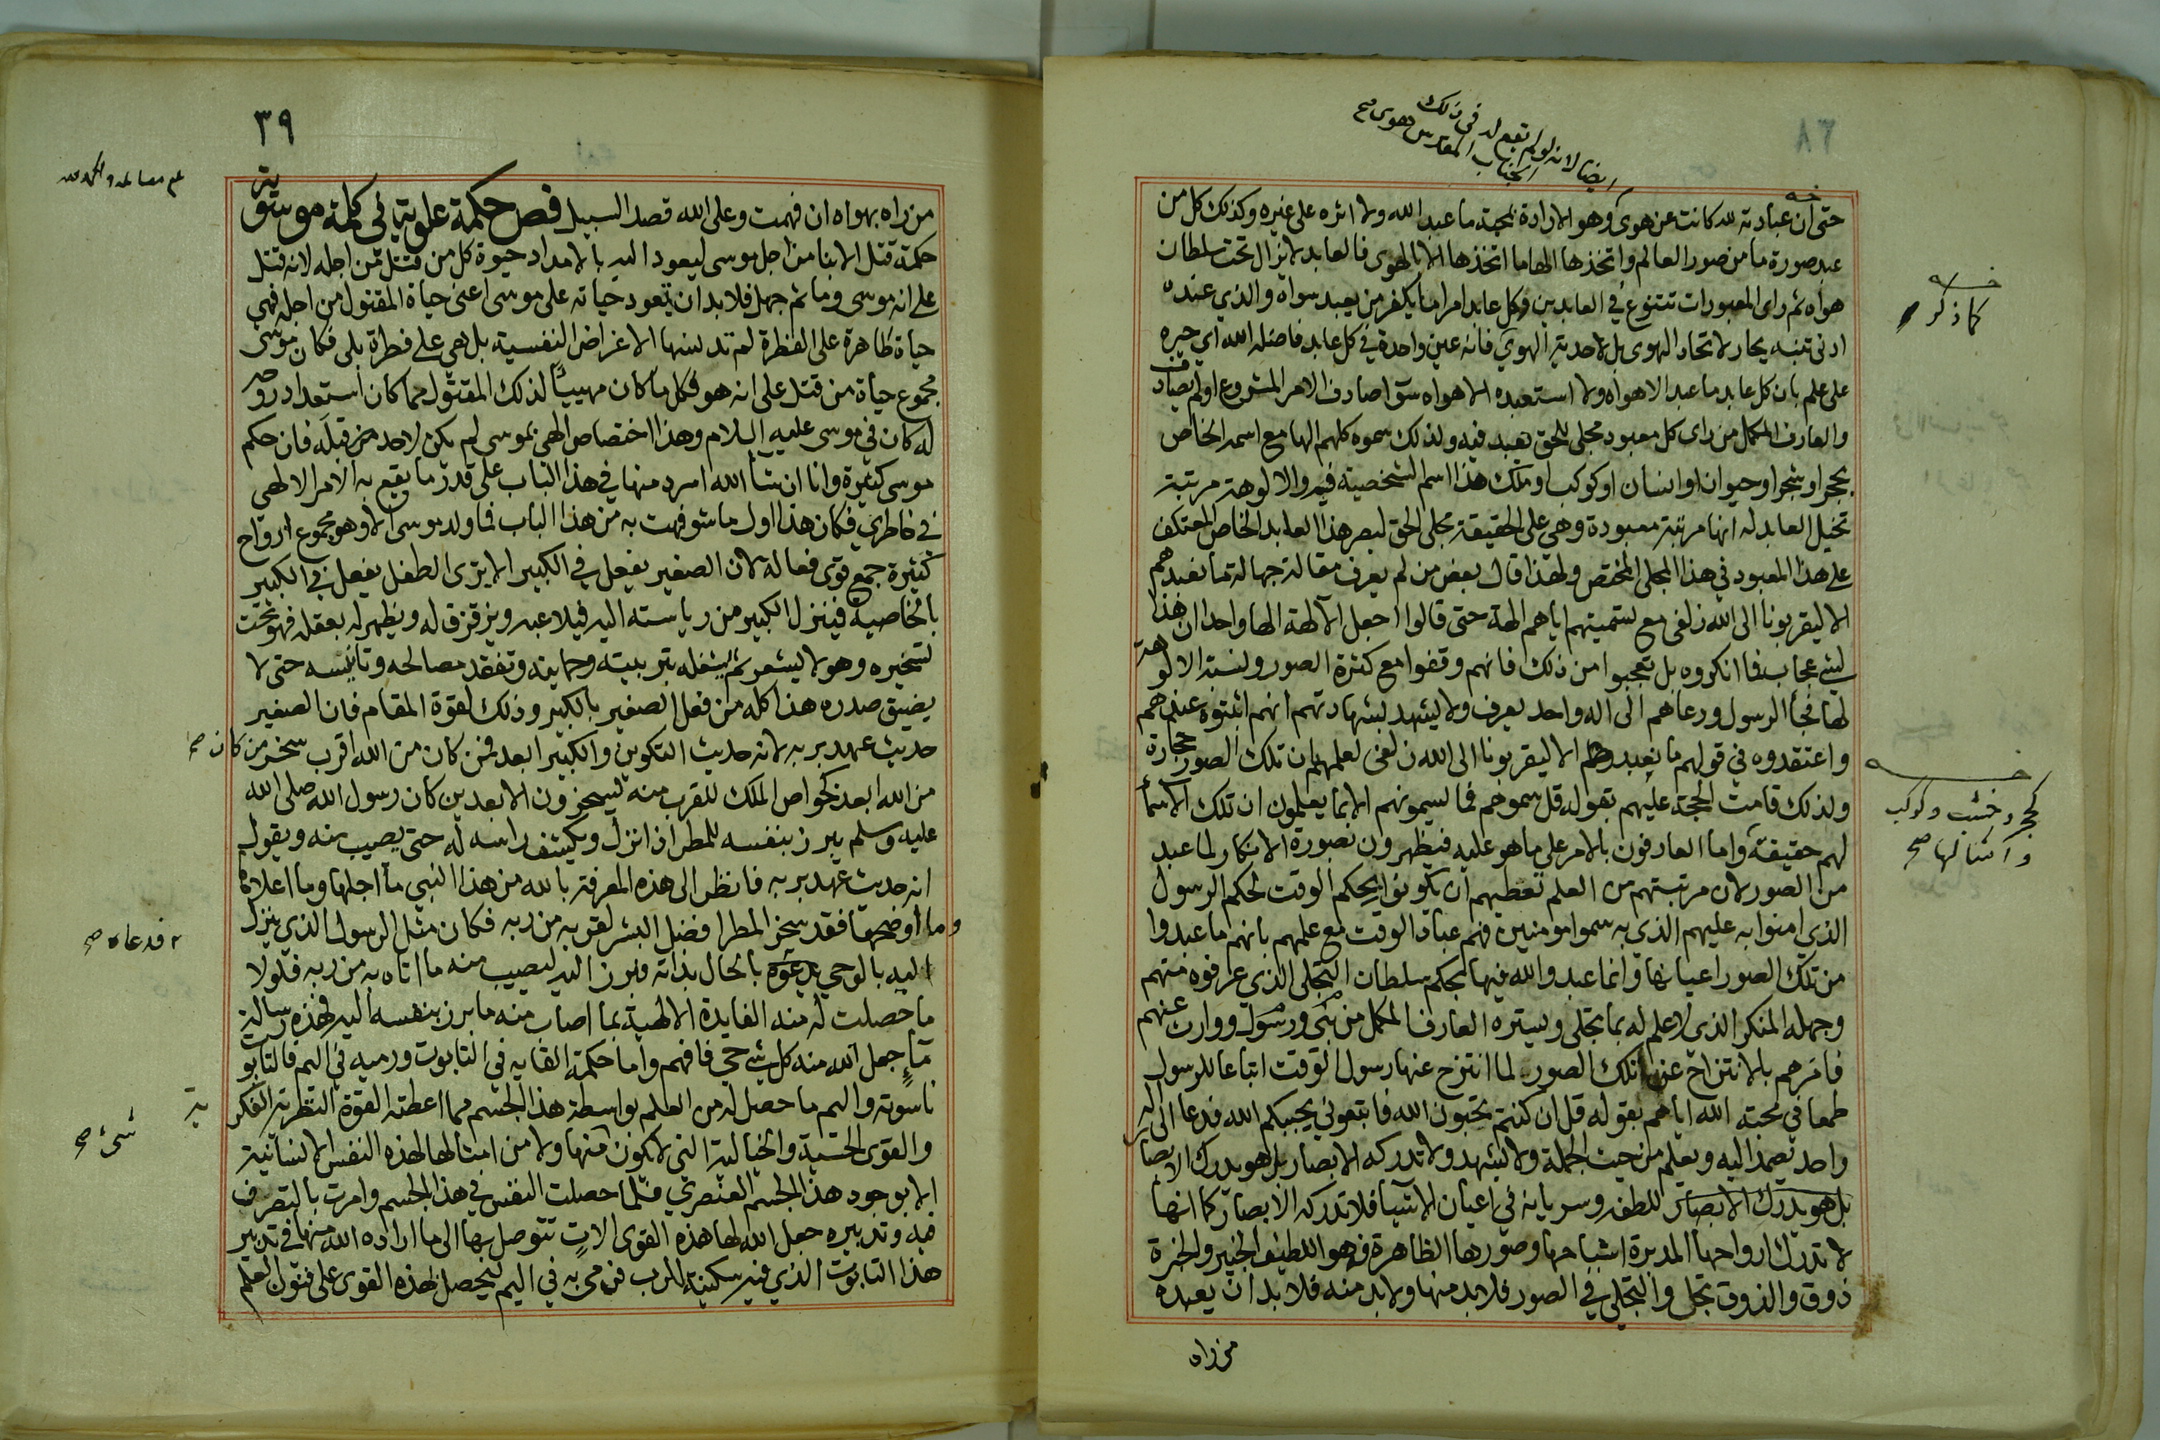 ٣٨
ايضا لانه لو لم تقع له في ذلك
الجناب المقدس هوى صح
حتى ان عبادته لله كانت عن هوى وهو الارادة محبة ما عبد الله ولا اثره على غيره وكذلك كل من
عبد صورة ما من صور العالم واتخذها الها ما اتخذها الا بالهوى فالعابد لا يزال تحت سلطان
هواه ثم راى المعبودات تتنوع في العابدين وكل عابد امرا ما يكفر من يعبد سواه والذي عنده
ادنى تنبه يحار لاتحاد الهوى بل لاحدية الهوى فانه عين واحدة في كل عابد فاضله الله اي حيره
على علم بان كل عابد ما عبد الا هواه ولا استعبده الا هواه سوآ صادف الامر المشروع او لم يصادف
والعارف المكمل من راى كل معبود مجلى للحق يعبد فيه ولذلك سموه كلهم الها مع اسمه الخاص
بحجر او شجر او حيوان او انسان او كوكب او ملك هذا اسم الشخصية فيه والالوهة مرتبة
تخيل العابد له انها مرتبة معبودة وهي على الحقيقة مجلى الحق لبصر هذا العابد الخاص المعتكف
على هذا المعبود في هذا المجلى المختص ولهذا قال بعض من لم يعرف مقالة جهالة ما نعبدهم
الا ليقربونا الى الله زلفى مع تسميتهم اياهم الهة حتى قالوا اجعل الآلهة الها واحدا ان هذا
لشئ عجاب فما انكروه بل تعجبوا من ذلك فانهم وقفوا مع كثرة الصور ونسبة الالوهة
لها فجآ الرسول ودعاهم الى اله واحد يعرف ولا يشهد بشهادتهم انهم اثبتوه عندهم
واعتقدوه في قولهم ما نعبدهم الا ليقربونا الى الله زلفى لعلمهم بان تلك الصور حجارة
ولذلك قامت الحجة عليهم بقوله قل سموهم فما يسمونهم الا بما يعلمون ان تلك الاسمآ
لهم حقيقة واما العارفون بالامر على ما هو عليه فيظهرون بصورة الانكار لما عبد
من الصور لان مرتبتهم من العلم تعطيهم ان يكونوا بحكم الوقت لحكم الرسول
الذي امنوا به عليهم الذي به سموا مومنين فهم عباد الوقت مع علمهم بانهم ما عبدوا
من تلك الصور اعيانها وانما عبدوا الله فيها بحكم سلطان التجلي الذي عرفوه منهم
وجهله المنكر الذي لا علم له بما تجلى ويستره العارف المكمل من نبي ورسول ووارث عنهم
فامرهم بالانتزاح عن تلك الصور لما انتزح عنها رسول الوقت اتباعا للرسول
طمعا في محبة الله اياهم بقوله قل ان كنتم تحبون الله فاتبعوني يحببكم الله فدعا الى اله
واحد يصمد اليه ويعلم من حيث الجملة ولا يشهد ولا تدركه الابصار بل هو يدرك الابصار
بل هو يدرك الابصار للطفه وسريانه في اعيان الاشيا فلا تدركه الابصار كما انها
لا تدرك ارواحها المدبرة اشباحها وصورها الظاهرة فهو اللطيف الخبير والخبرة
ذوق والذوق تجل والتجلي في الصور فلا بد منها ولا بد منه فلا بد ان يعبده
من راه
كما ذكر
كحجر وخشب وكوكب
وامثالها صح
٣٩
من راه بهواه ان فهمت وعلى الله قصد السبيل فص حكمة علوية في كلمة موسوية
حكمة قتل الابنا من اجل موسى ليعود اليه بالامداد حيوة كل من قتل من اجله لانه قتل
على انه موسى وما ثم جهل فلا بد ان تعود حياته على موسى اعني حياة المقتول من اجله فهي
حياة ظاهرة على الفطرة لم تدنسها الاغراض النفسية بل هي على فطرة بلى فكان موسى
مجموع حياة من قتل على انه هو فكل ما كان مهيئا لذلك المقتول مما كان استعداد روحه
له كان في موسى عليه السلام وهذا اختصاص الهي بموسى لم يكن لاحد من قبله فان حكم
موسى كثيرة وانا ان شآ الله اسرد منها في هذا الباب على قدر ما يقع به الامر الالهي
في خاطري فكان هذا اول ما شوفهت به من هذا الباب فما ولد موسى الا وهو مجموع ارواح
كثيرة جمع قوى فعالة لان الصغير يفعل في الكبير الا يرى الطفل يفعل في الكبير
بالخاصية فينزل الكبير من رياسته اليه فيلاعبه ويزقزق له ويظهر له بعقله فهو تحت
تسخيره وهو لا يشعر ثم يشغله بتربيته وحمايته وتفقد مصالحه وتانيسه حتى لا
يضيق صدره هذا كله من فعل الصغير بالكبير وذلك لقوة المقام فان الصغير
حديث عهد بربه لانه حديث التكوين والكبير ابعد فمن كان من الله اقرب سخر من كان صح
من الله ابعد كخواص الملك للقرب منه يسخرون الابعدين كان رسول الله صلى الله
عليه وسلم يبرز بنفسه للمطر اذا نزل ويكشف راسه له حتى يصيب منه ويقول
انه حديث عهد بربه فانظر الى هذه المعرفة بالله من هذا النبي ما اجلها وما اعلاها
وما اوضحها فقد سخر المطر افضل البشر لقربه من ربه فكان مثل الرسول الذي ينزل
اليه بالوحي يدعوه بالحال بذاته فبرز اليه ليصيب منه ما اتاه به من ربه فلولا
ما حصلت له منه الفايدة الالهية بما اصاب منه ما برز بنفسه اليه فهذه رسالة
مآء جعل الله منه كل شئ حي فافهم واما حكمة القايه في التابوت ورميه في اليم فالتابو
ناسوته واليم ما حصل له من العلم بواسطة هذا الجسم مما اعطته القوة النظرية الفكر
ية
والقوى الحسية والخيالية التي لا يكون منها ولا من امثالها لهذه النفس الانسانية
الا بوجود هذا الجسم العنصري فلما حصلت النفس في هذا الجسم وامرت بالتصرف
فيه وتدبيره جعل الله لها هذه القوى الات تتوصل بها الى ما اراده الله منها في تدبير
هذا التابوت الذي فيه سكينة الرب فرمى به في اليم ليحصل بهذه القوى على فنون العلم
فدعاه صح
شئ صح